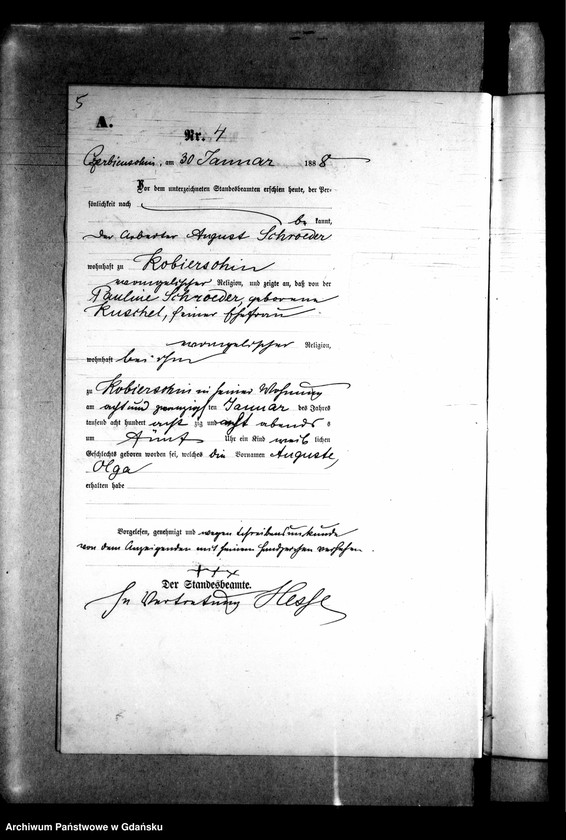 5
A.
Nr. 4
Czerbienschin, am 30 Januar 1888
Vor dem unterzeichneten Standesbeamten erschien heute, der Per-
sönlichkeit nach
be kannt,
der Arbeiter August Schroeder
wohnhaft zu Kobierschin
evangelischer Religion, und zeigte an, daß von der
Pauline Schroeder, geborene
Kuschel, seiner Ehefrau
evangelischer Religion,
wohnhaft bei ihm
zu Kobierschin in seiner Wohnung
am acht und zwanzigsten Januar des Jahres
tausend acht hundert acht zig und acht abends
um fünf Uhr ein Kind weib lichen
Geschlechts geboren worden sei, welches die Vornamen Auguste,
Olga
erhalten habe
Vorgelesen, genehmigt und wegen Schreibensunkunde
von dem Anzeigenden mit seinem Handzeichen versehen.
+++
Der Standesbeamte.
In Vertretung Hesse
Archiwum Państwowe w Gdańsku